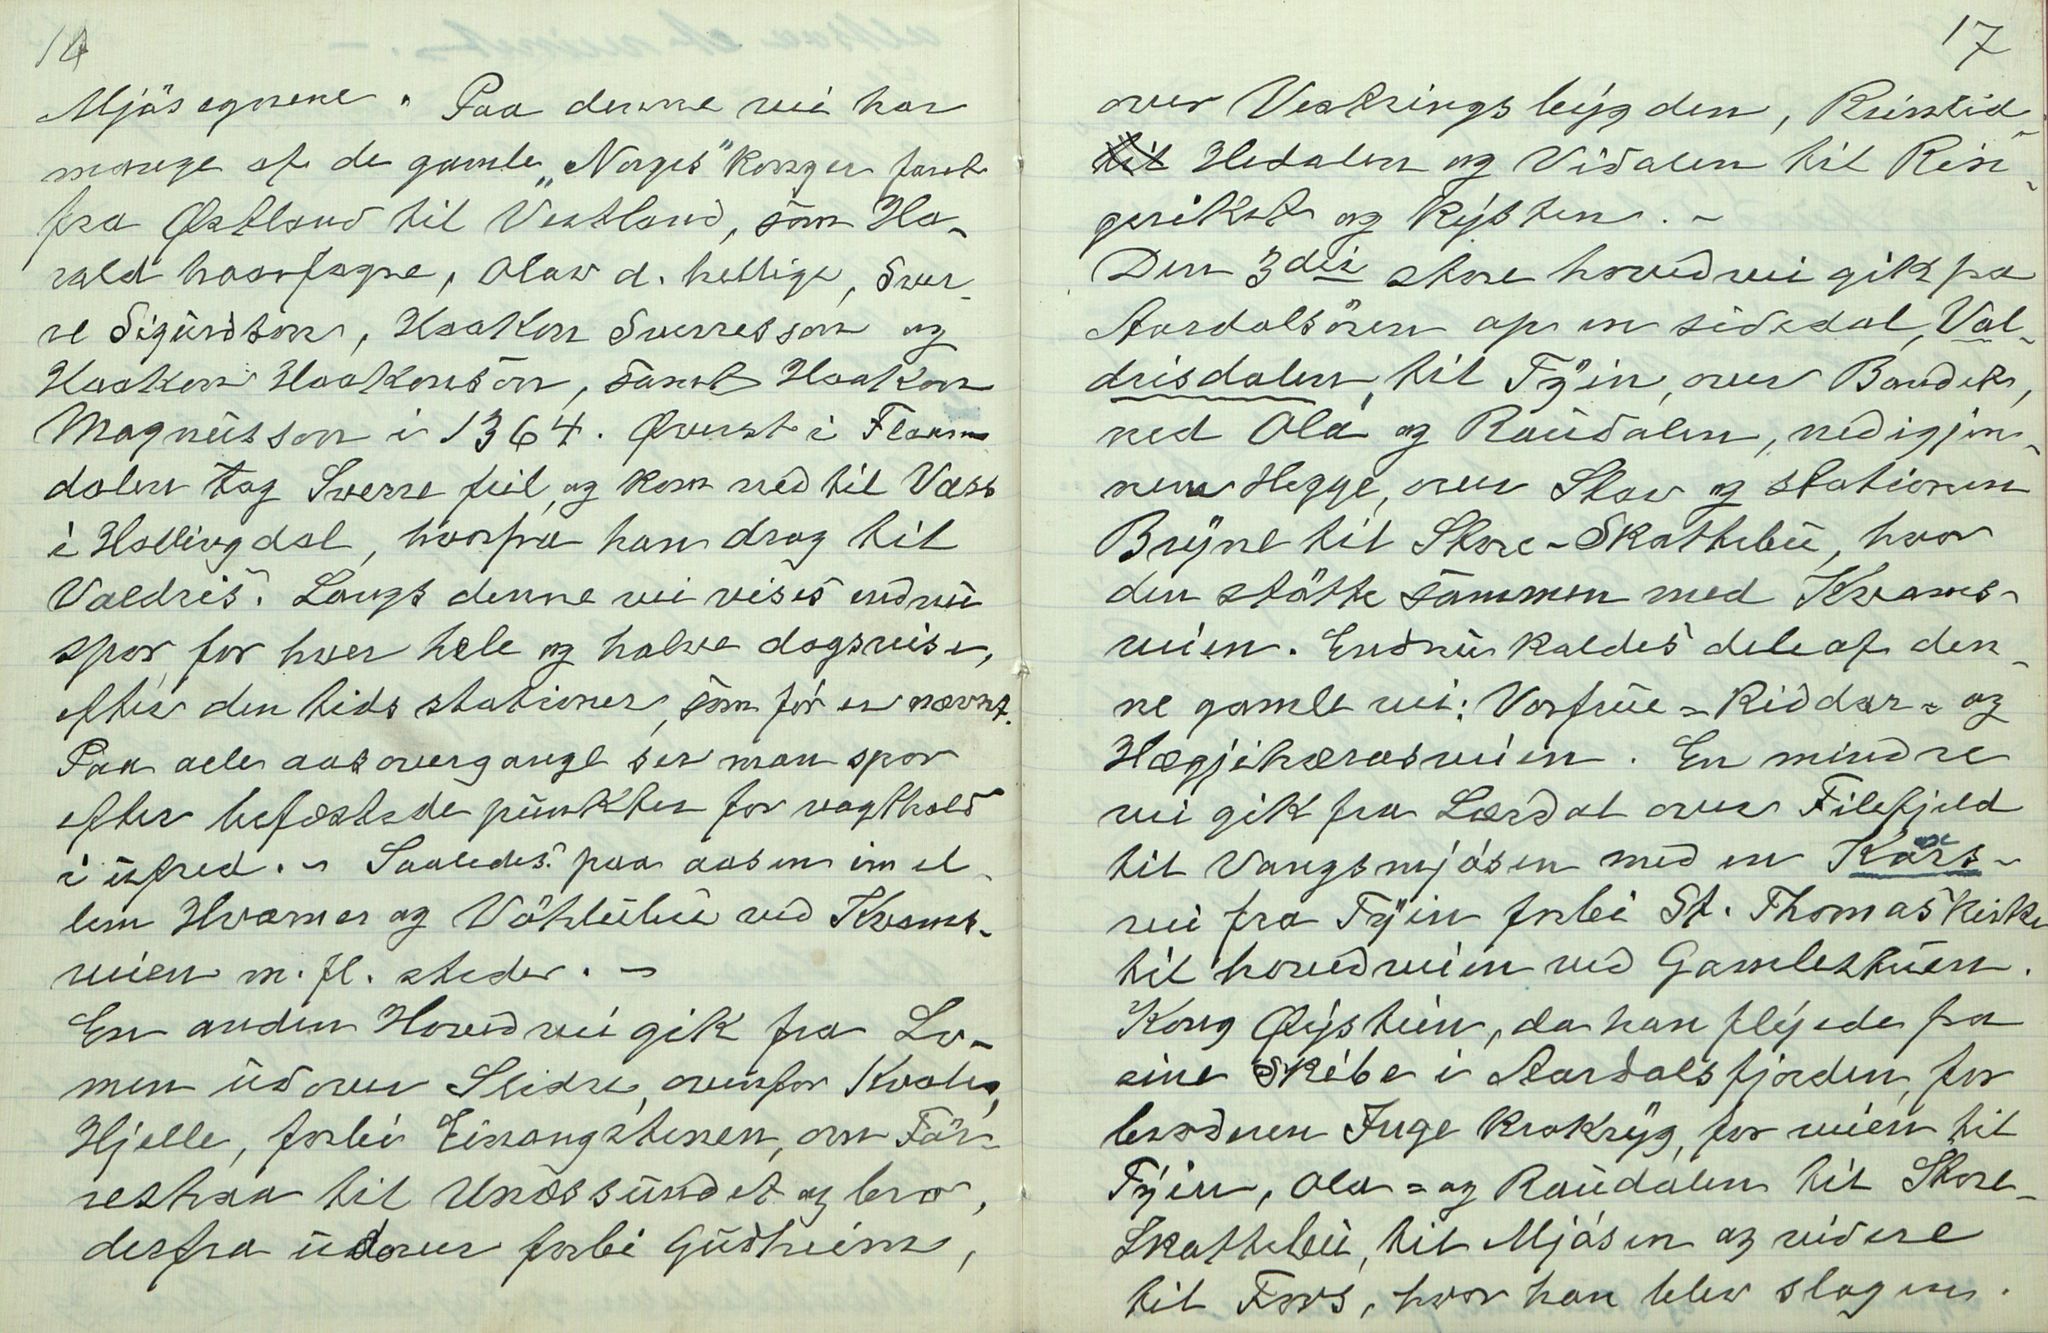 14
Mjøsegnene. Paa denne vei har
mange af de gamle „Norges" konger faret
fra Østland til Vestland, som Ha-
rald haarfagre, Olav d. hellige, Sver-
re Sigurdson, Haakon Sverresson og
Haakon Haakonsøn, samt Haakon
Magnusson i 1364. Øverst i Flaams
dalen tog Sverre feil, og kom ned til Vass
i Hallingdal, hvorfra han drog til
Valdres. Langs denne vei vises endnu
spor for hver hele og halve dagsreise,
efter den tids stationer, som før er nævnt.
Paa alle aasovergange ser man spor
efter befæstede punkter for vagthold
i ufred. - Saaledes paa aasen imel-
lem Hvamer og Vøhlubu ved Kvams-
veien m. fl. steder. -
En anden Hovedvei gik fra Lo-
men udover Slidre, ovenfor Kvale,
Hjelle, forbi Einangstenen, om För-
reshaa til Unössundet og bro,
derfra udover forbi Gudheim,
17
over Vestringsbygden, Reinslid
til Hedalen og Vidalen til Rin-
geriket og Kysten. -
Den 3die store hovedvei gik fra
Aardalsøren op en sidedal, Val-
drisdalen, til Tyin, over Bandet,
ned Ola og Raudalen, ned igjen-
nem Hegge, over Skav og stationen
Bryne til Store-Skattebu, hvor
den støtte sammen med Kvams-
veien. Endnu kaldes dele af den-
ne gamle vei: Vorfrue = Riddar = og
Hægjekærasveien. En mindre
vei gik fra Lærdal over Filefjeld
til Vangsmjøsen med en Kors-
vei fra Tyin forbi St. Thomaskirke
til hovedveien ved Gamlestuen.
Kong Øystein, da han flyede fra
sine Skibe i Aardalsfjorden, for
broderen Inge Krokryg, for veien til
Tyin, Ola = og Raudalen til Store-
Skattebu, til Mjøsen og videre
til Fors, hvor han blev slagen.